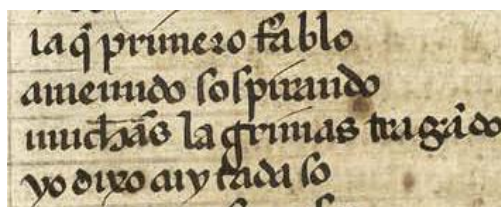 la q̃ primero fablo
amenudo sospirando
muchas lagrimas tragãdo
yo dixo cuytada so